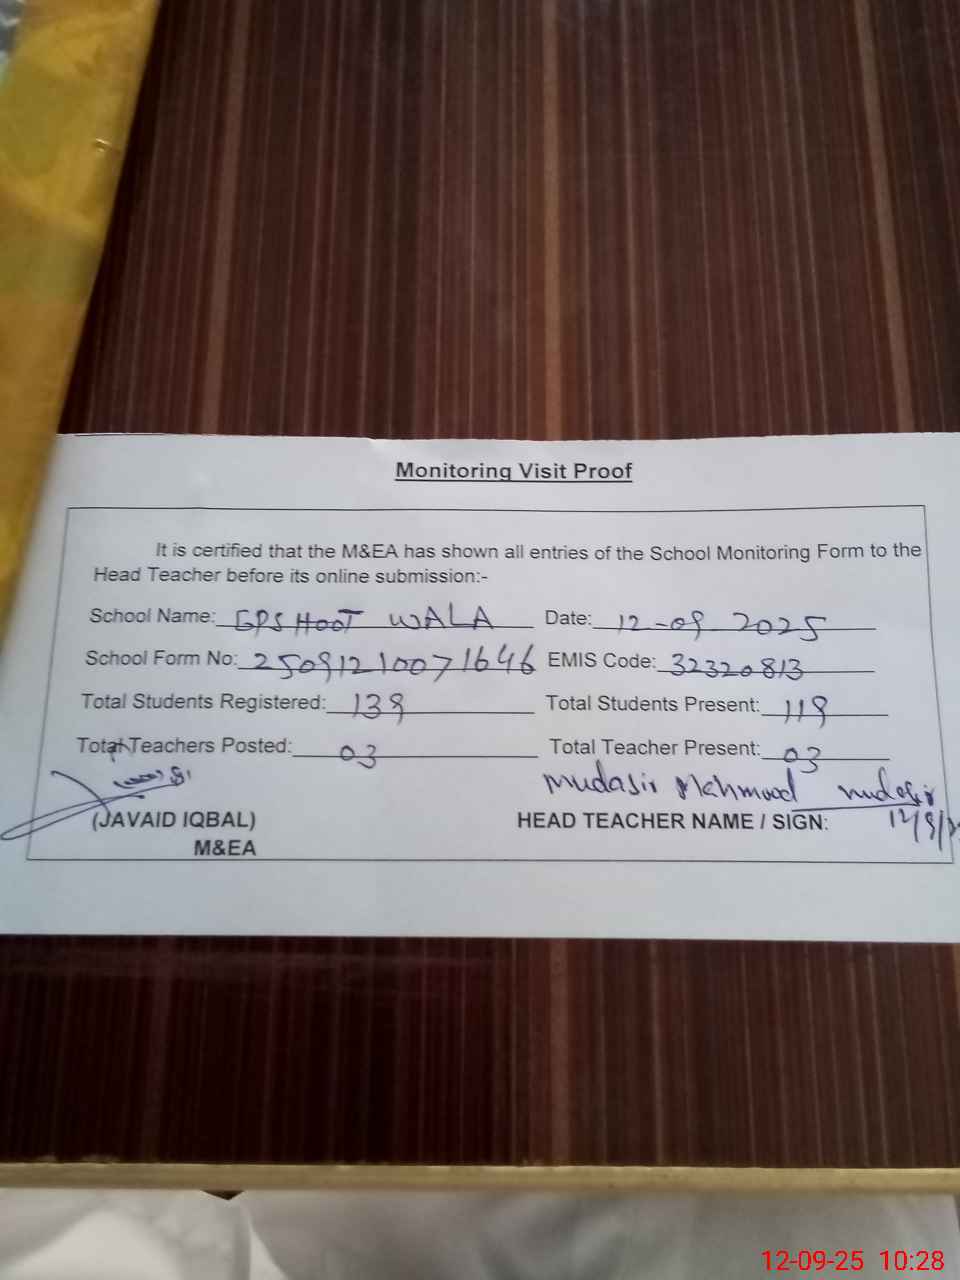 Monitoring Visit Proof
It is certified that the M&EA has shown all entries of the School Monitoring Form to the
Head Teacher before its online submission:-
School Name: GPS HOOT WALA Date: 12-09 2025
School Form No: 2509121007 1646 EMIS Code: 32320813
Total Students Registered: 139 Total Students Present: 119
Total Teachers Posted: 03 Total Teacher Present: 03
Mudasir Mehmood Mudasir
(JAVAID IQBAL) HEAD TEACHER NAME / SIGN: 12/9/25
M&EA
12-09-25 10:28